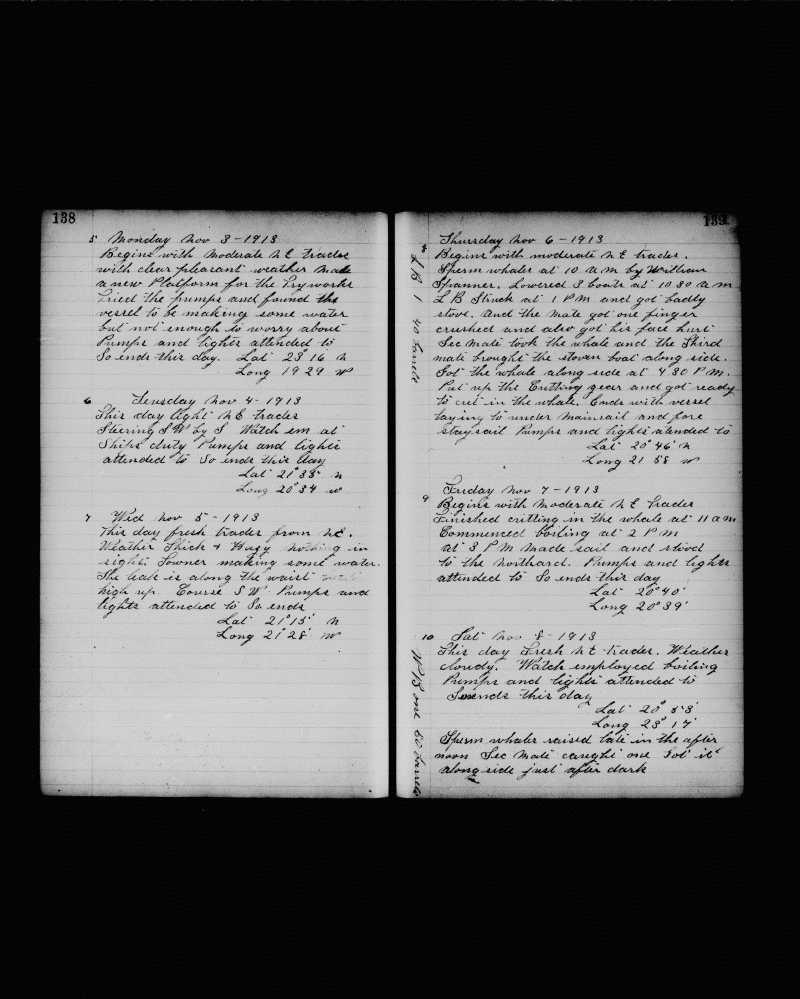 138
5 Monday Nov 3 - 1913
Begins with Moderate N E trades
with clear pleasant weather Made
a new Platform for the Tryworks
Tried the pumps and found the
vessel to be making some water
but not enough to worry about
Pumps and lights attended to
So ends this day. Lat 23° 16 N
Long 19 29 W
6 Teusday Nov 4 - 1913
This day light N E trades
Steering S W by S Watch em at
Ships duty Pumps and lights
attended to So ends this day
Lat 21° 38' N
Long 20° 34 W
7 Wed Nov 5 - 1913
This day fresh trades from N E.
Weather Thick & Hazy nothing in
sight. Towner making some water.
The leak is along the waist
high up. Course S W. Pumps and
lights attended to So ends
Lat 21° 15' N
Long 21° 28' W
139
8 Thursday Nov 6 - 1913
Begins with moderate N E trades.
Sperm whales at 10 A M by William
Spanner. Lowered 3 boats at 10 30 a m
L B Struck at 1 P M and got badly
stove. And the Mate got one finger
crushed and also got his face hurt
Sec Mate took the whale and the Third
mate brought the stoven boat along side.
Got the whale along side at 4 30 P M.
Put up the Cutting gear and got ready
to cut in the whale. Ends with vessel
laying to under mainsail and fore
staysail Pumps and lights atended to
Lat 20° 46' N
Long 21 58 W
L B 1 40 barrels
9 Friday Nov 7 - 1913
Begins with Moderate N E trades
Finished cutting in the whale at 11 a m
Commenced boiling at 2 P M
at 3 P M Made sail and stood
to the northard. Pumps and lights
attended to So ends this day
Lat 20° 40'
Long 20° 39'
10 Sat Nov 8 - 1913
This day Fresh N E trades. Weather
cloudy. Watch employed boiling
Pumps and lights attended to
So ends this day
Lat 20° 53'
Long 23° 17'
Sperm whales raised late in the after
noon Sec Mate caught one Got it
along side just after dark
W B one 50 barrels